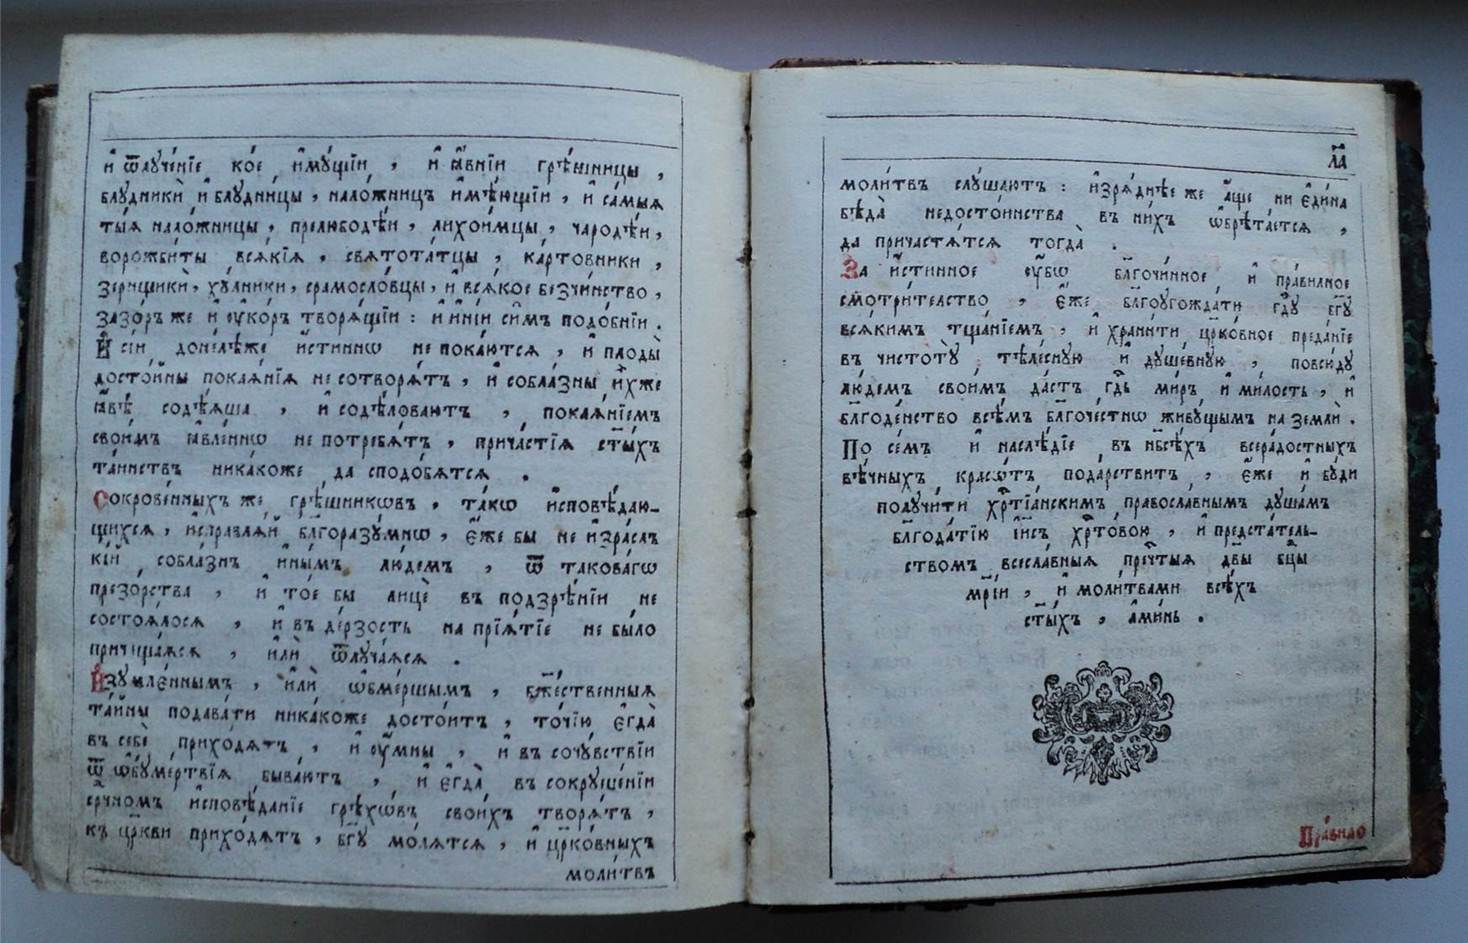 и҆ ѿлуче́нїе ко́е и҆му́щїи , и҆ ꙗ҆́внїи грѣ́шницы ,
блудникѝ и҆ блудни́цы , нало́жницъ и҆мѣ́ющїи , и҆ са́мыя
ты́я нало́жницы , прелюбодѣ́и , лихои́мцы , чародѣ́и ,
ворожби́ты вся́кїя , святота́тцы , карто́вники ,
зе́рнщики , ху́лники , срамосло́вцы , и҆ вся́кое безчи́нство ,
зазо́ръ же и҆ ᲂу҆ко́ръ творя́щїи : и҆ и҆ні́и си̑мъ подо́бнїи .
И҆ сі́и доне́лѣже и҆́стиннѡ не пока́ются , и҆ плоды̀
досто́йны покая́нїя не сотворя́тъ , и҆ собла́зны и҆́хже
ꙗ҆́вѣ содѣ́яша , и҆ содѣ́ловаютъ , покая́нїемъ
свои́мъ ꙗ҆вле́ннѡ не потребя́тъ , прича́стїя ст҃ы́хъ
та́инствъ ника́коже да сподо́бятся .
Сокрове́нныхъ же грѣ́шникѡвъ , та́кѡ и҆сповѣ́даю-
щихся , и҆справля́й бл҃горазу́мнѡ , є҆́же бы не и҆зрасла̀
кі́й собла́знъ и҆ны́мъ лю́демъ , ѿ таково́гѡ
презо́рства , и҆ то́е бы лицѐ въ подзрѣ́нїи не
состоя́лося , и҆ въ де́рзость на прїя́тїе не бы́ло
причища́яся , и҆лѝ ѿлуча́яся .
И҆зумле́ннымъ , и҆лѝ ѡ҆бме́ршымъ , бж҃е́ственныя
та́йны подава́ти ника́коже досто́итъ , то́чїю є҆гда̀
въ себѐ прихо́дятъ , и҆ ᲂу҆́мны , и҆ въ сочу́вствїи
ѿ ѡ҆буме́ртвїя быва́ютъ , и҆ є҆гда̀ въ сокруше́нїи
се́рдчномъ и҆сповѣ́данїе грѣхѡ́въ свои́хъ творя́тъ ,
къ цр҃кви прихо́дятъ , бг҃у мо́лятся , и҆ цр҃ко́вныхъ
моли́твъ
л҃а
моли́твъ слу́шаютъ : и҆зря́днѣе же а҆́ще ни є҆ди́на
бѣда̀ недосто́инства въ ни́хъ ѡ҆брѣта́ется ,
да причастя́тся тогда̀ .
За и҆́стинное ᲂу҆́бѡ бл҃гочи́нное и҆ пра́вилное
смотри́телство , є҆́же бл҃гоугожда́ти гд҇у бг҃у
вся́кимъ тща́нїемъ , и҆ храни́ти цр҃ко́вное преда́нїе
въ чистоту̀ тѣле́сную и҆ душе́вную , повсю́ду
лю́демъ свои́мъ да́стъ гд҇ь ми́ръ и҆ ми́лость , и҆
бл҃годе́нство всѣ́мъ бл҃гоче́стнѡ живу́щымъ на землѝ .
По се́мъ и҆ наслѣ́дїе въ нб҇сѣ́хъ всера́достныхъ
вѣ́чныхъ красѡ́тъ пода́рствитъ , є҆́же и҆ бу́ди
получи́ти хр҇тїа́нскимъ правосла́внымъ душа́мъ
бл҃года́тїю і҆и҃съ хр҇то́вою , и҆ предста́тель-
ствомъ всесла́вныя преч҇тыя дв҃ы бц҃ы
мр҃і́и , и҆ моли́твами всѣ́хъ
ст҃ы́хъ , а҆ми́нь .
Пра́вило